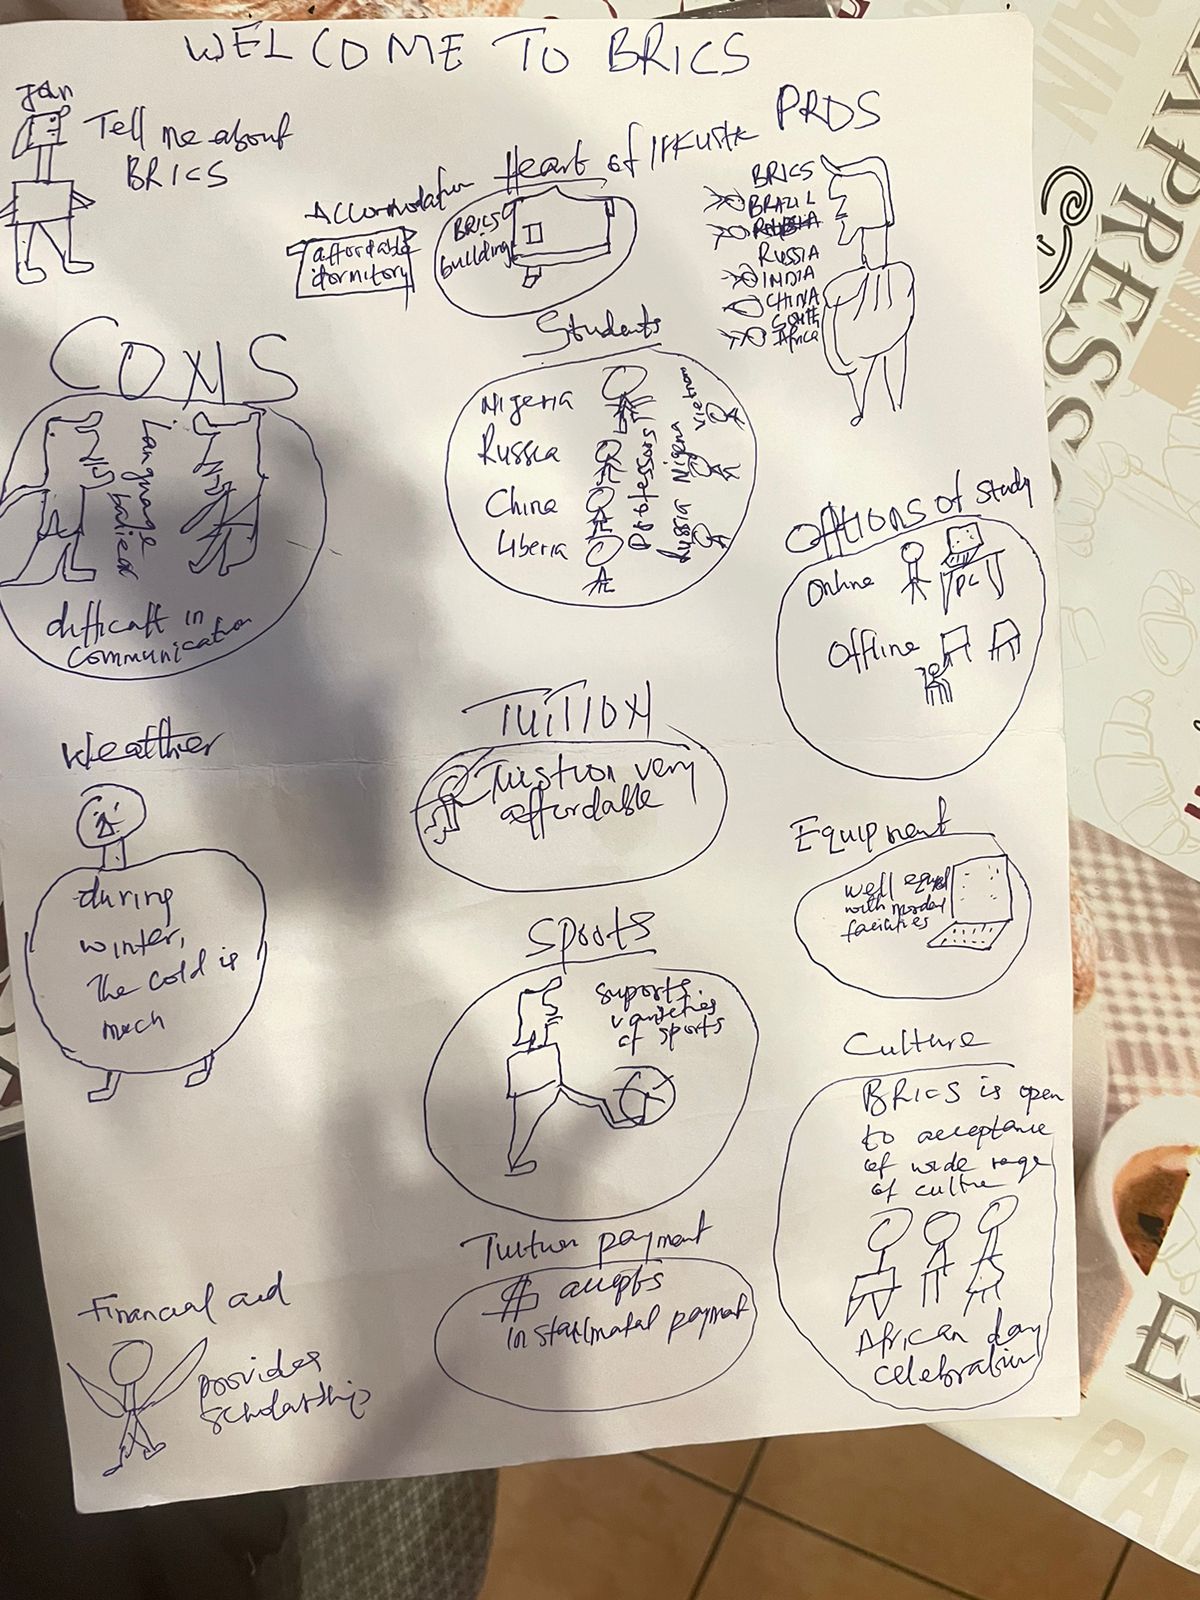 WELCOME TO BRICS
Jan
Tell me about
BRICS
PROS
Accommodation
Heart of Irkutsk
affordable
dormitory
BRICS
building
BRICS
BRAZIL
RUSSIA
INDIA
CHINA
South
Africa
CONS
Language
barier
difficalt in
communication
Students
Nigeria
Russia
China
Liberia
Professors
Vietnam
Nigeria
Russia
Options of study
Online
PC
Offline
Weather
during
winter,
the cold is
much
TUITION
Tuistion very
affordable
Equipment
well equip
with morden
facilities
Sports
suports
varieties
of sports
Culture
BRICS is open
to acceptance
of wide range
of culture
African day
celebration
Tuition payment
$ accepts
installmatal payment
Financial aid
provides
scholarship
PAIN
APRESS
E
PA